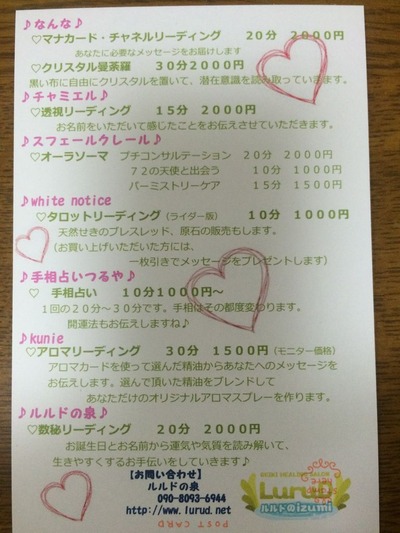 ♪なんな♪
♡マナカード・チャネルリーディング 20分 2000円
あなたに必要なメッセージをお届けします
♡クリスタル曼荼羅 30分2000円
黒い布に自由にクリスタルを置いて、潜在意識を読み取っていきます。
♪チャミエル♪
♡透視リーディング 15分 2000円
お名前をいただいて感じたことをお伝えさせていただきます。
♪スフェールクレール♪
♡オーラソーマ プチコンサルテーション 20分 2000円
72の天使と出会う 10分 1000円
パーミストリーケア 15分 1500円
♪white notice
♡タロットリーディング(ライダー版) 10分 1000円
天然せきのブレスレッド、原石の販売もします。
(お買い上げいただいた方には、
一枚引きでメッセージをプレゼントします)
♪手相占いつるや♪
♡ 手相占い 10分1000円~
1回の20分~30分です。手相はその都度変わります。
開運法もお伝えしますね♪
♪kunie
♡アロマリーディング 30分 1500円(モニター価格)
アロマカードを使って選んだ精油からあなたへのメッセージを
お伝えします。選んで頂いた精油をブレンドして
あなただけのオリジナルアロマスプレーを作ります。
♪ルルドの泉♪
♡数秘リーディング 20分 2000円
お誕生日とお名前から運気や気質を読み解いて、
生きやすくするお手伝いをしていきます♪
【お問い合わせ】
ルルドの泉
090-8093-6944
http://www.lurud.net
REIKI HEALING SALON
Lurud
ルルドのizumi
POST CARD